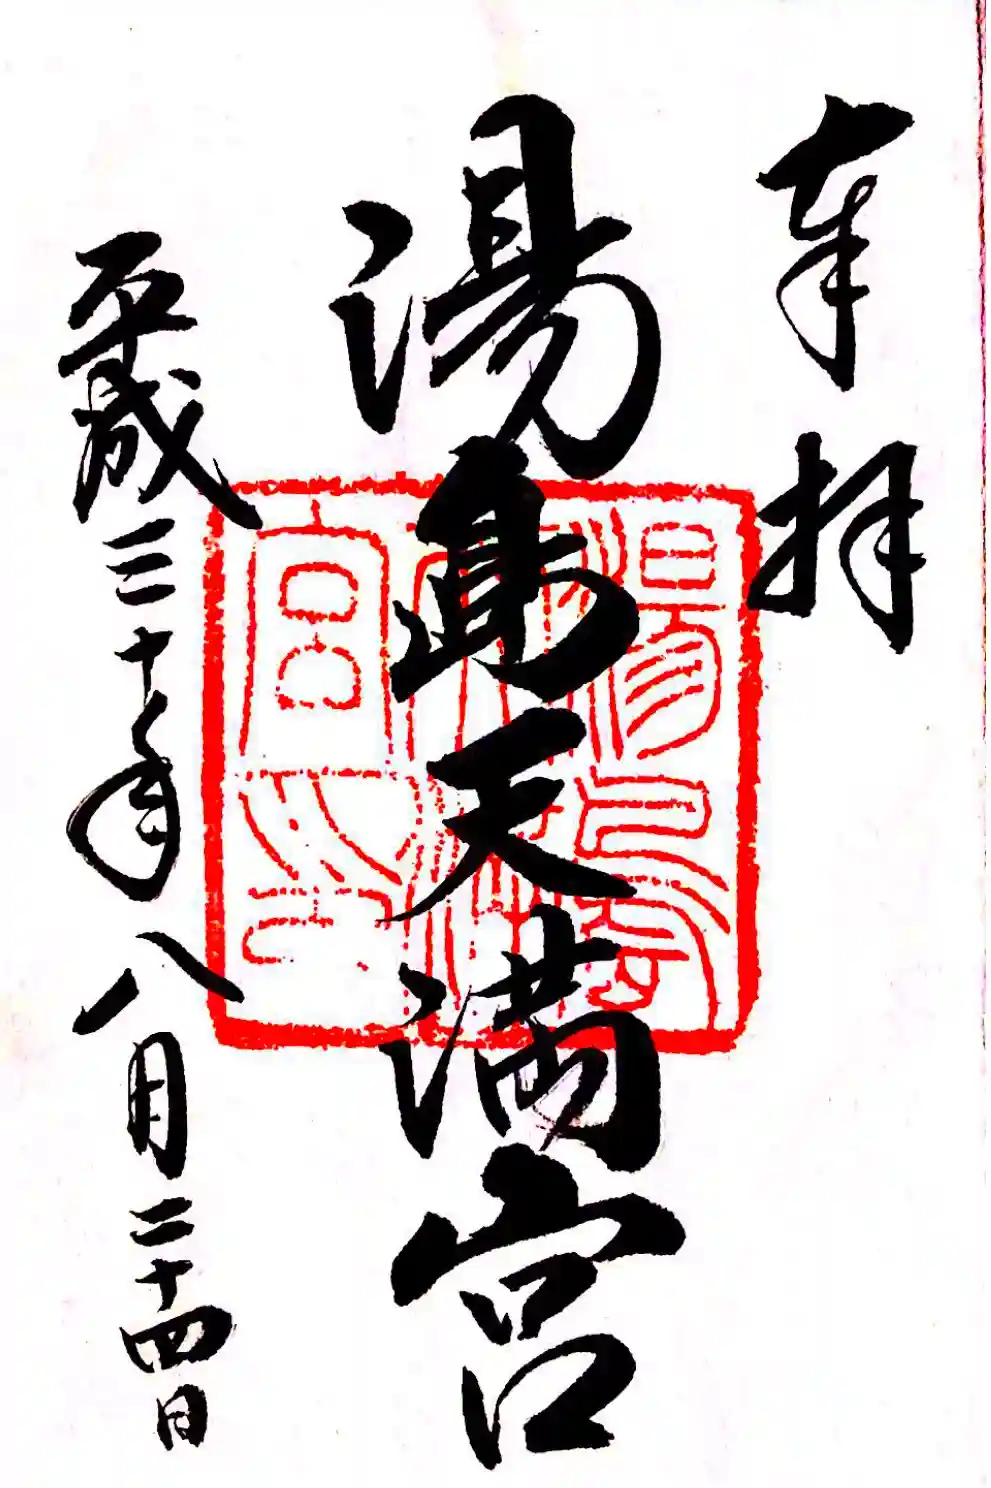 奉拝
湯島天満宮
平成三十年八月二十四日
湯島天満宮之印